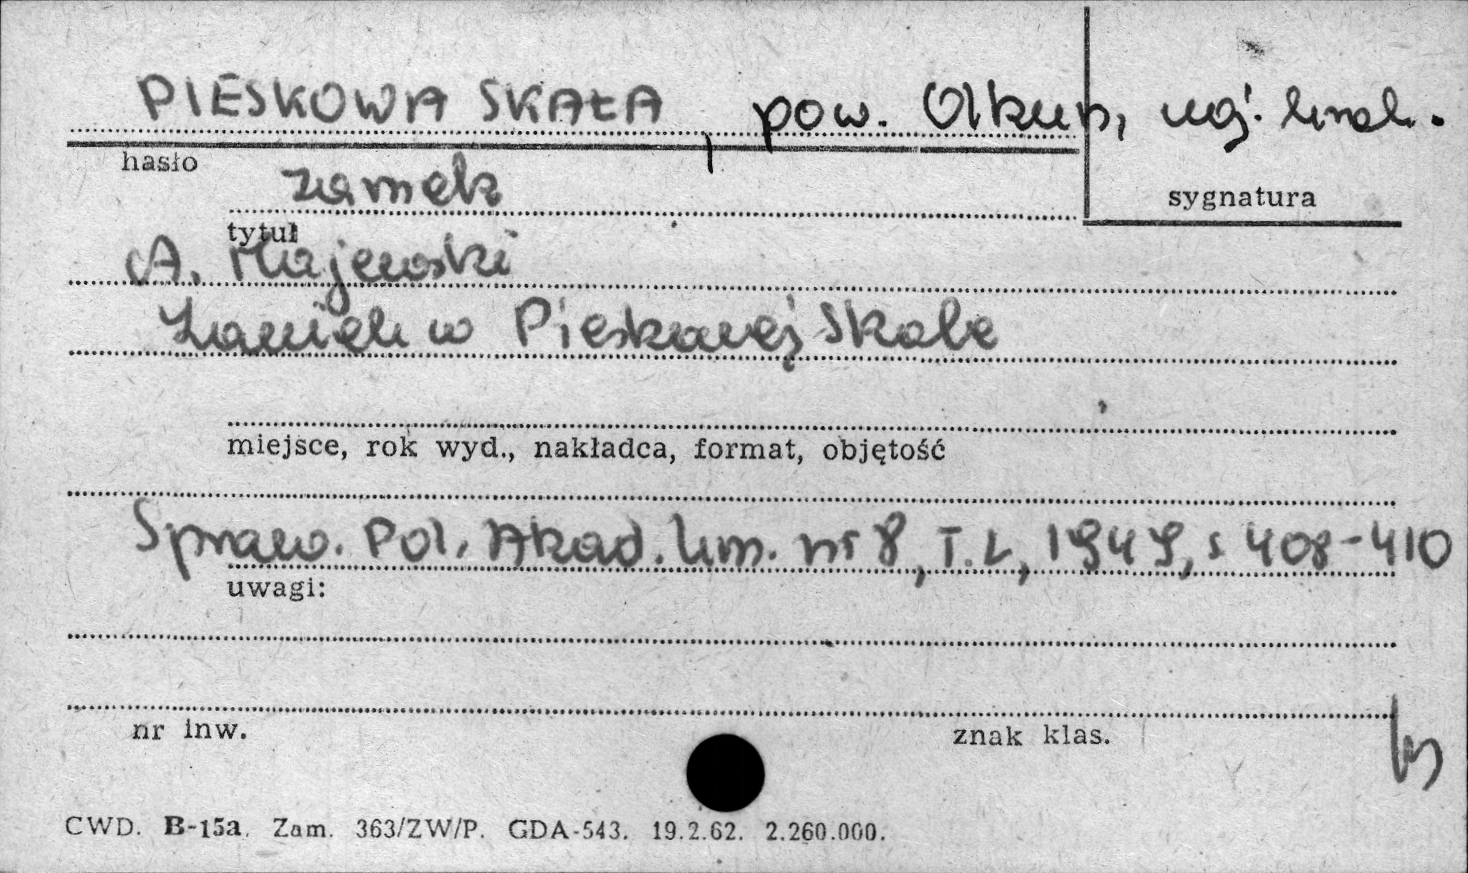 PIESKOWA SKAŁA, pow. Olkusz, woj. krak.
hasło
zamek
sygnatura
tytuł
A. Majewski
Zamek w Pieskowej Skale
miejsce, rok wyd., nakładca, format, objętość
Spraw. Pol. Akad. Um. nr 8, T. L, 1949, s 408-410
uwagi:
nr inw.
znak klas.
CWD. B-15a. Zam. 363/ZW/P. GDA-543. 19.2.62. 2.260.000.